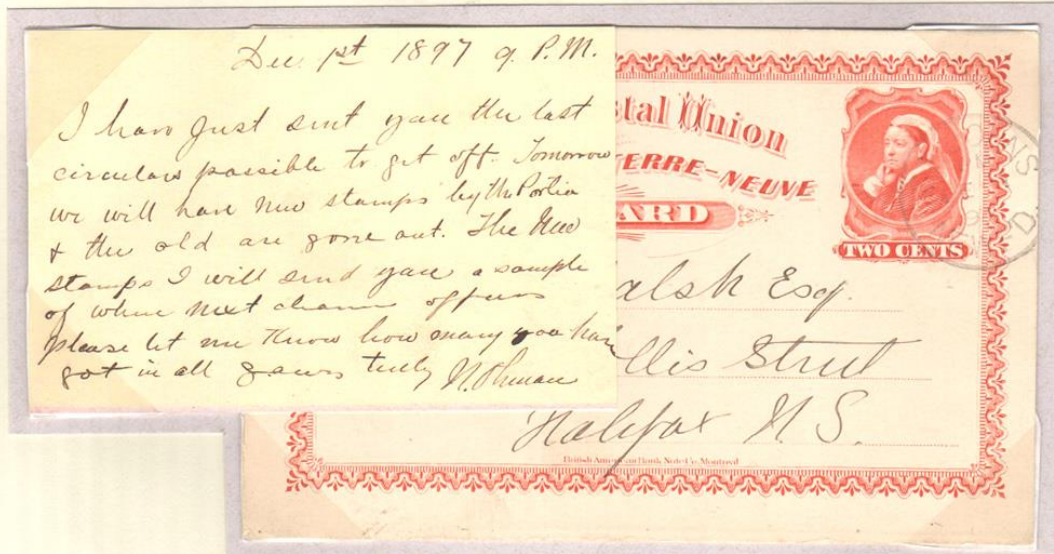 Dec. 1st 1897 9. P.M.
I have Just sent you the last
circulars possible to get off. Tomorrow
we will have new stamps by the Portia
& the old are gone out. The New
stamps I will send you a sample
of when next chance offers
please let me know how many you have
got in all yours truly
stal Union
TERRE-NEUVE
ARD
TWO CENTS
alsh Esq.
llis Street
Halifax N S.
British American Bank Note Co. Montreal